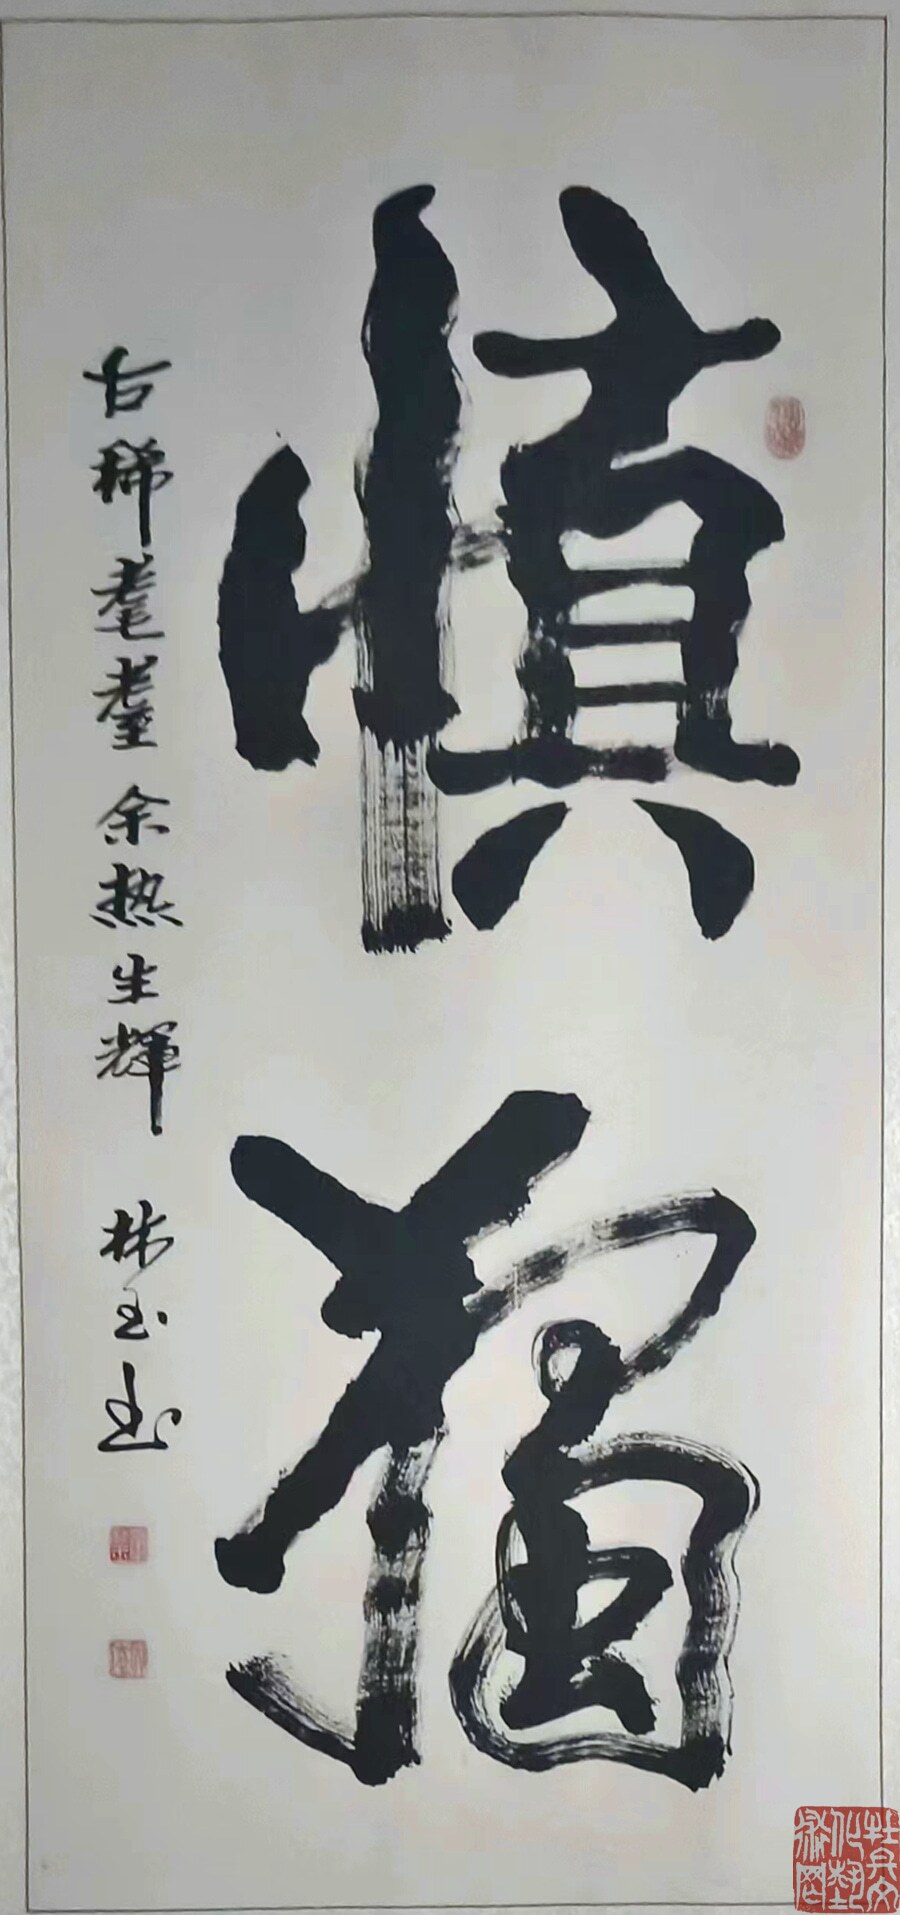 慎獨
古稀耄耋余热生輝
林玉书